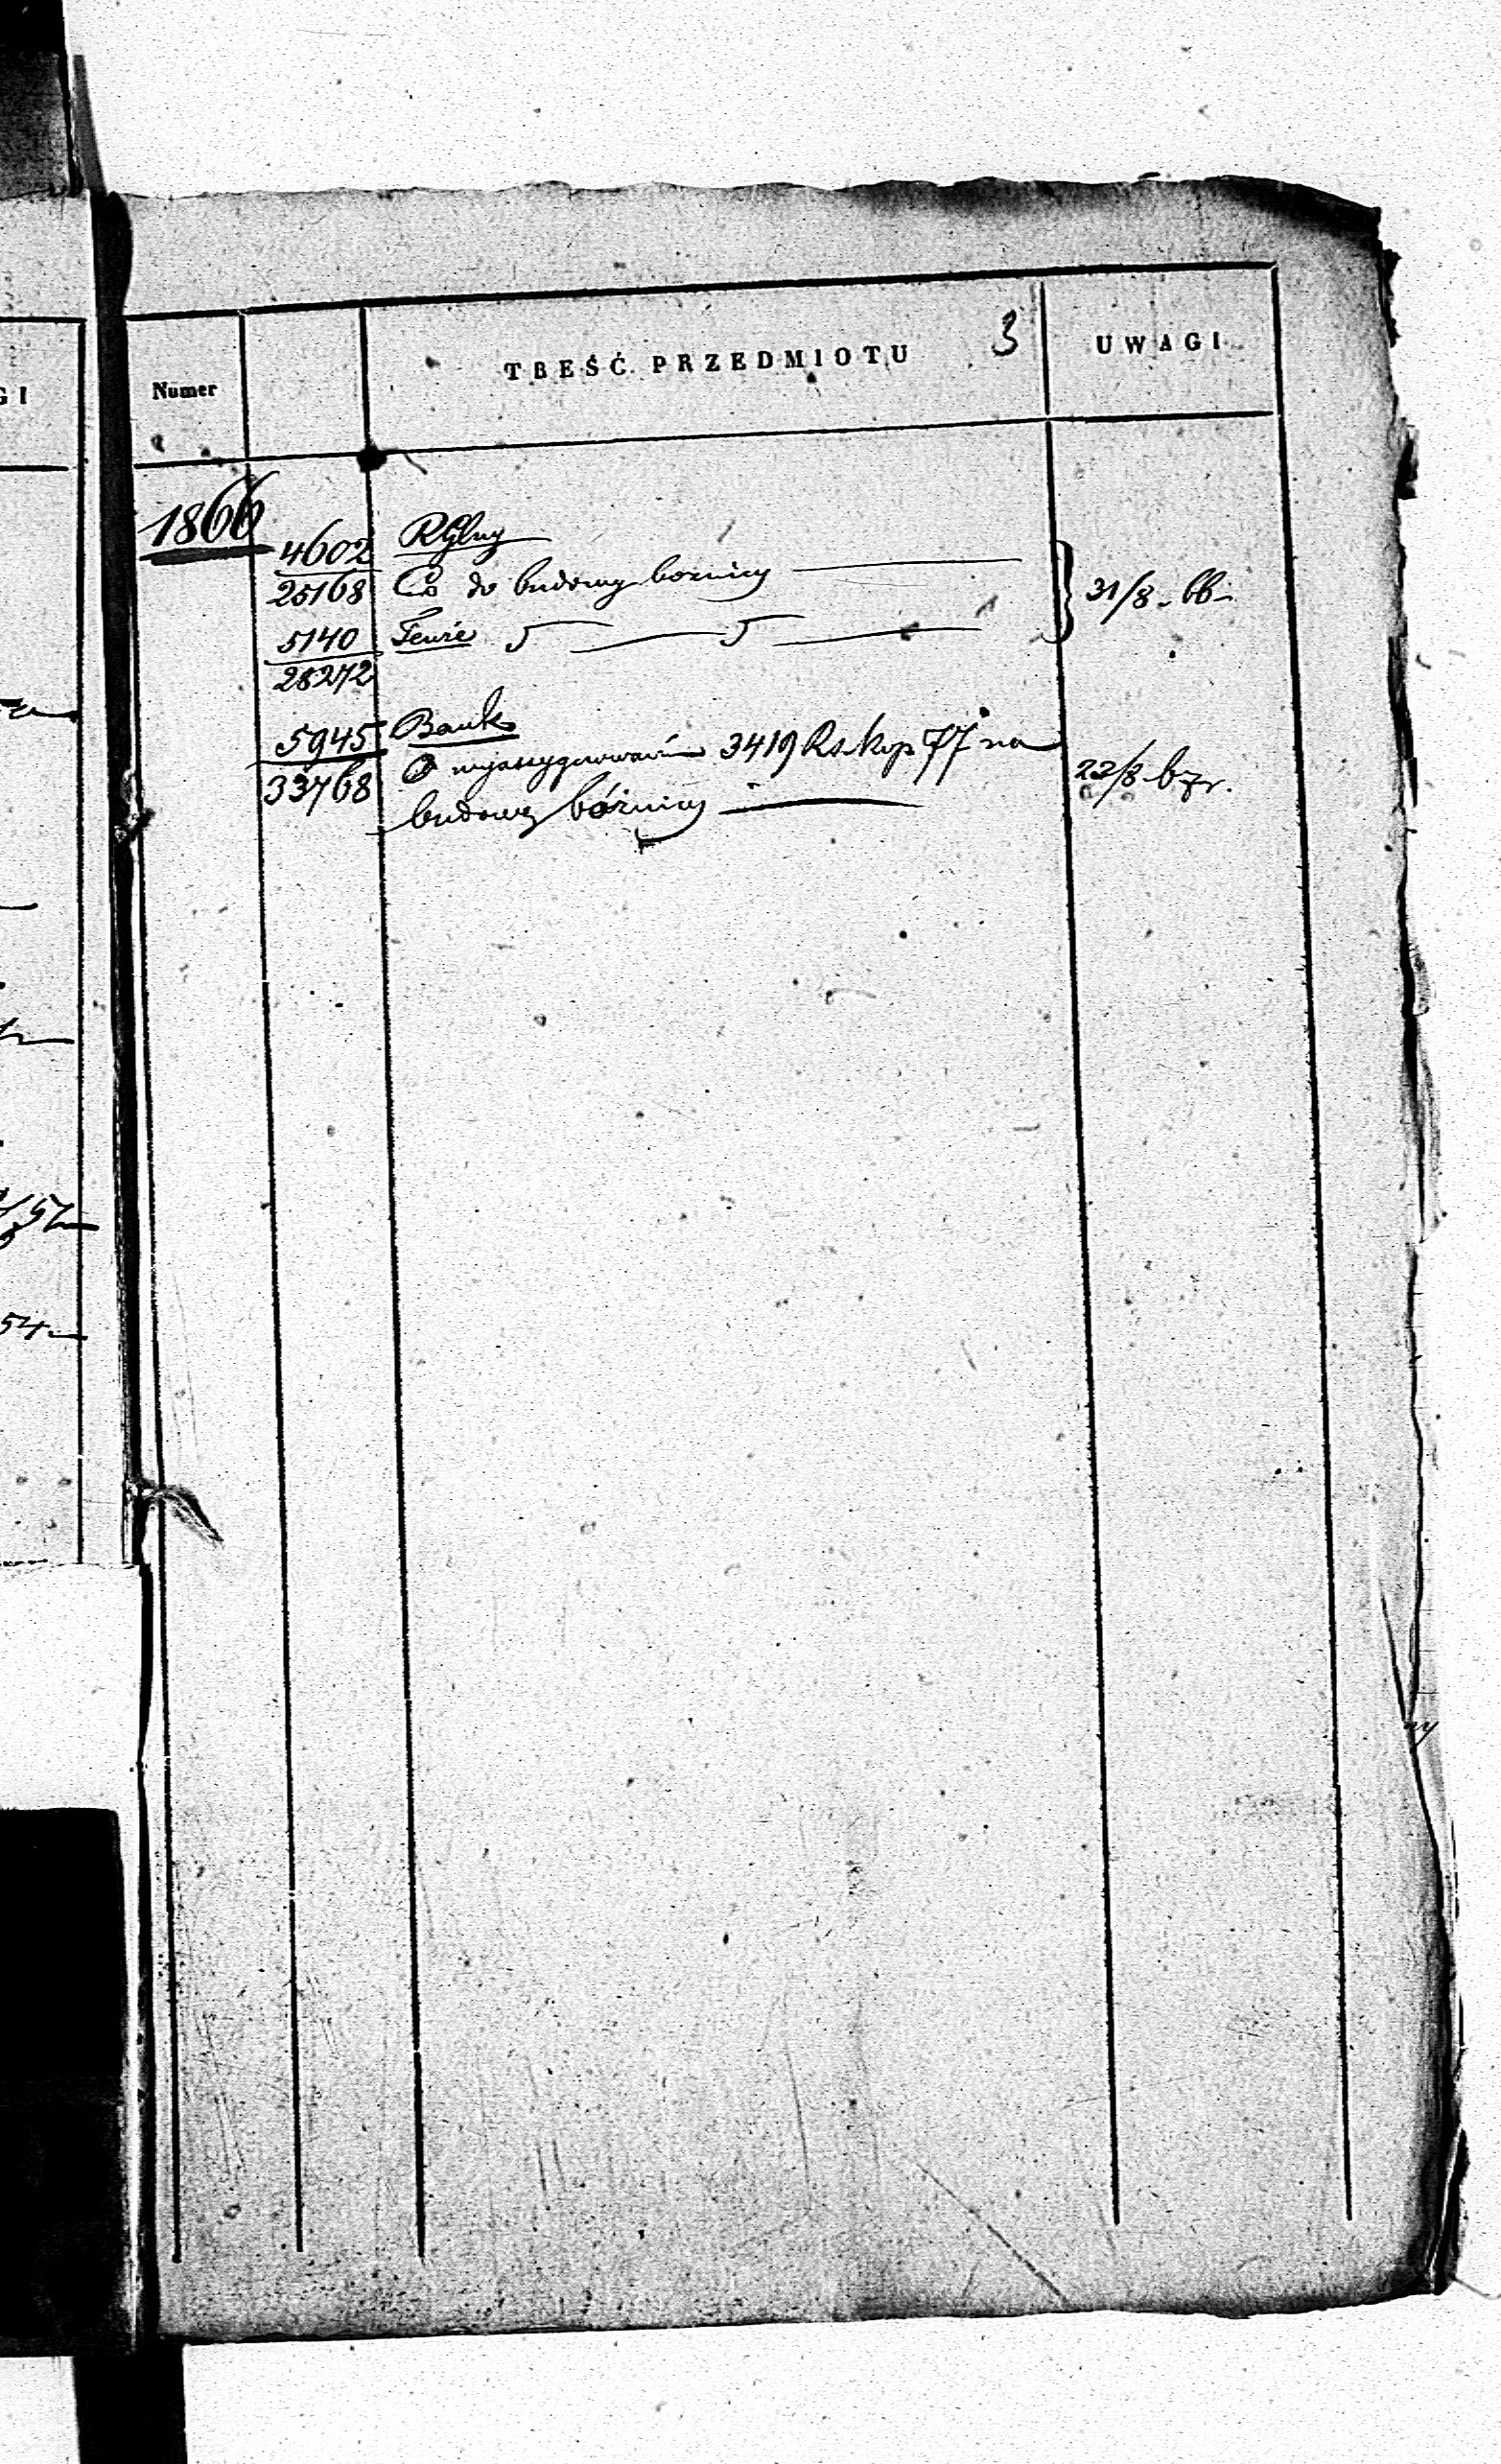 GI
3
Numer TREŚĆ PRZEDMIOTU UWAGI
1866
4602 RGlny
25168 Co do budowy boznicy 31/8 - 66
5140 Tenże
28272
5945 Bank
33768 O wyassygnowanie 3419 Rs. kop 77 na 22/8
budowę bóżnicy
54